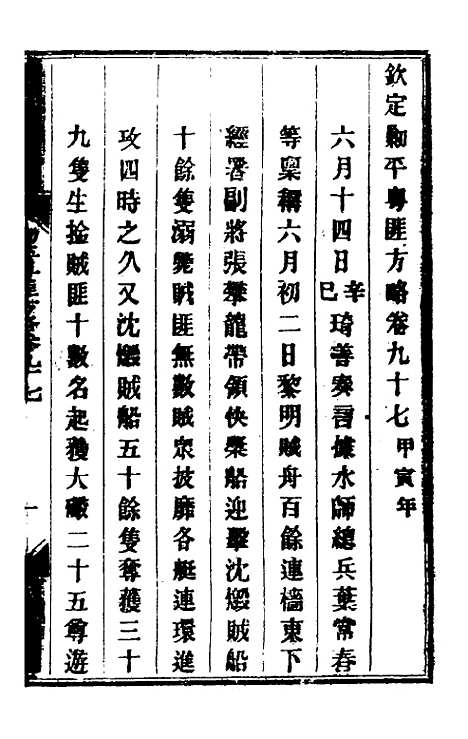 欽定剿平粵匪方略卷九十七甲寅年
六月十四日辛巳琦善奏言據水師總兵葉常春
等稟稱六月初二日黎明賊舟百餘連檣東下
經署副將張攀龍帶領快槳船迎擊沈燬賊船
十餘隻溺斃賊匪無數賊眾披靡各艇連環進
攻四時之久又沈燬賊船五十餘隻奪獲三十
九隻生擒賊匪十數名起獲大礮二十五尊遊
卷九十七
一